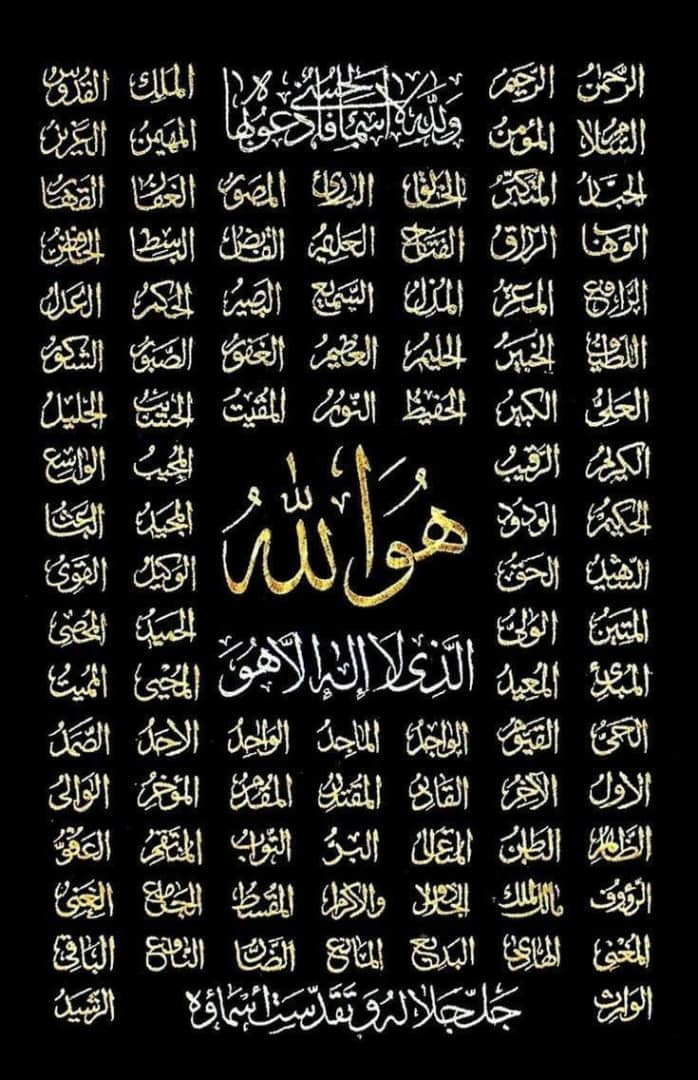 الرَّحْمٰنُ الرَّحِيمُ وَلِلَّهِ الْأَسْمَاءُ الْحُسْنَىٰ فَادْعُوهُ بِهَا الْمَلِكُ الْقُدُّوسُ
السَّلَامُ الْمُؤْمِنُ الْمُهَيْمِنُ الْعَزِيزُ
الجبار المتكبر الخالق البارئ المصور الغفار القهار
الوهاب الرزاق الفتاح العليم القابض الباسط الخافض
الرافع المعز المذل السميع البصير الحكم العدل
اللطيف الخبير الحليم العظيم الغفور الصبور الشكور
العلي الكبير الحفيظ النور المقيت الحسيب الجليل
الكريم الرقيب المجيب الواسع
الحكيم الودود هُوَ اللّٰهُ المجيد الباعث
الشهيد الحق الوكيل القوى
المتين الولى الحميد المحصى
المبدئ المعيد الَّذِى لَا إِلٰهَ إِلَّا هُوَ المحيى المميت
الحى القيوم الواجد الماجد الواحد الاحد الصمد
الاول الآخر القادر المقتدر المقدم المؤخر الوالى
الظاهر الباطن المتعالى البر التواب المنتقم العفو
الرؤوف مالك الملك ذو الجلال والاكرام المقسط الجامع الغنى
المغنى الهادى البديع المانع الضار النافع الباقى
الوارث جَلَّ جَلَالُهُ وَتَقَدَّسَتْ أَسْمَاؤُهُ الرشيد